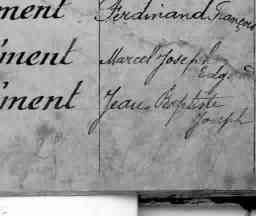 ment Ferdinand François
ment Marcel Joseph
Edg
ment Jean Baptiste
Joseph